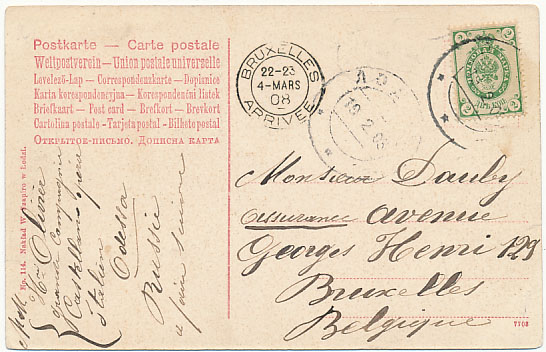 Postkarte — Carte postale
Weltpostverein—Union postale universelle
Levelező-Lap — Correspondenzkarte — Dopisnice
Karta korespondencyjna — Korespondenční listek
Briefkaart — Post card — Brefkort — Brevkort
Cartolina postale - Tarjeta postal - Bilhete postal
Открытое-письмо. Дописна карта
BRUXELLES
22-23
4-MARS
08
ARRIVÉE
2 2
Monsieur Dauby
assurance avenue
Georges Henri 129
Bruxelles
Belgique
Castellane
station
Odessa
Russie
Ep. 114. Nakład W. Szapiro w Łodzi.
7708